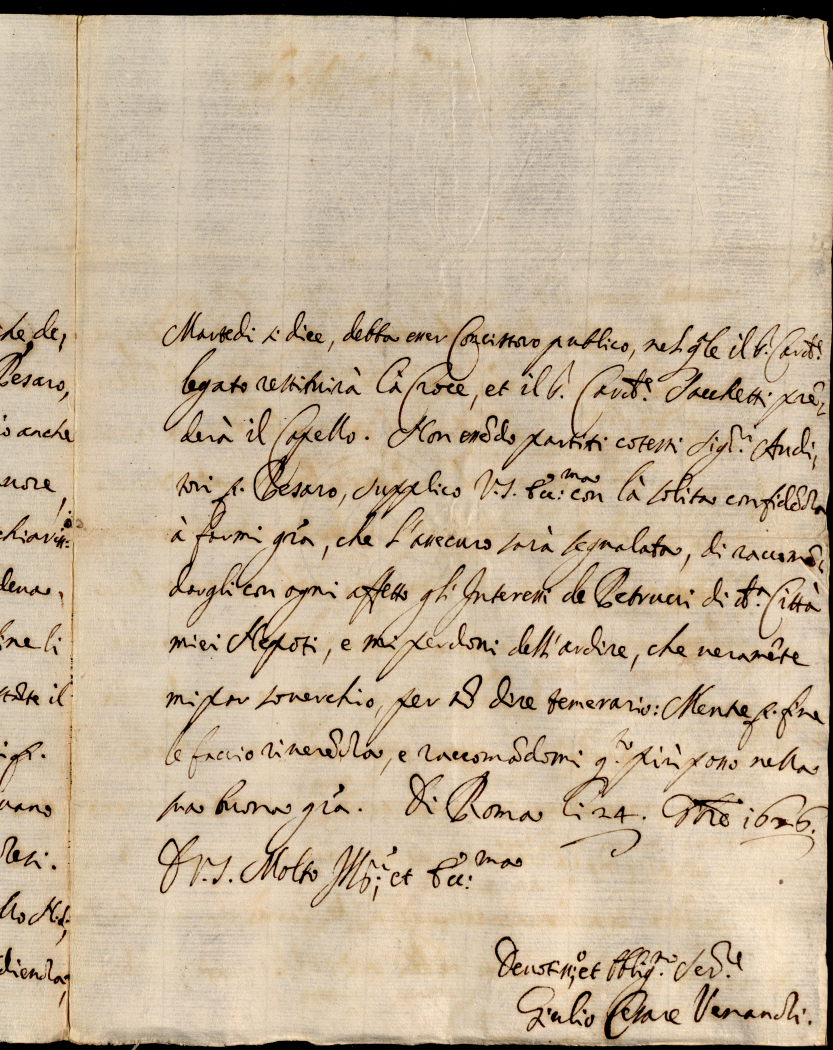 che de,
Pesaro,
anche
fine li
il
Martedi si dice, debba esser Concistoro publico, nel qle il S.r Card.le
legato restituirà la Croce, et il S.r Card.le Sacchetti prẽ,
derà il Capello. Non essẽdo partiti cotesti Sig.ri Audi,
tori p. Pesaro, supplico V.S. Ecc:ma con la solita confidẽza
à farmi grã, che l'assecuro sarà segnalata, di raccomã,
dargli con ogni affetto gl'Interessi de Petrucci di d.a Città
miei Nepoti, e mi perdoni dell'ardire, che veramẽte
mi par soverchio, per nõ dire temerario: Mente p. fine
le faccio riverẽza, e raccomãdomi q.to più posso nella
sua buona grã. Di Roma li 24. 1626.
D V.S. Molto Ill.re et Ecc:ma
Devotiss.o et Oblig.mo Ser.re
Giulio Cesare